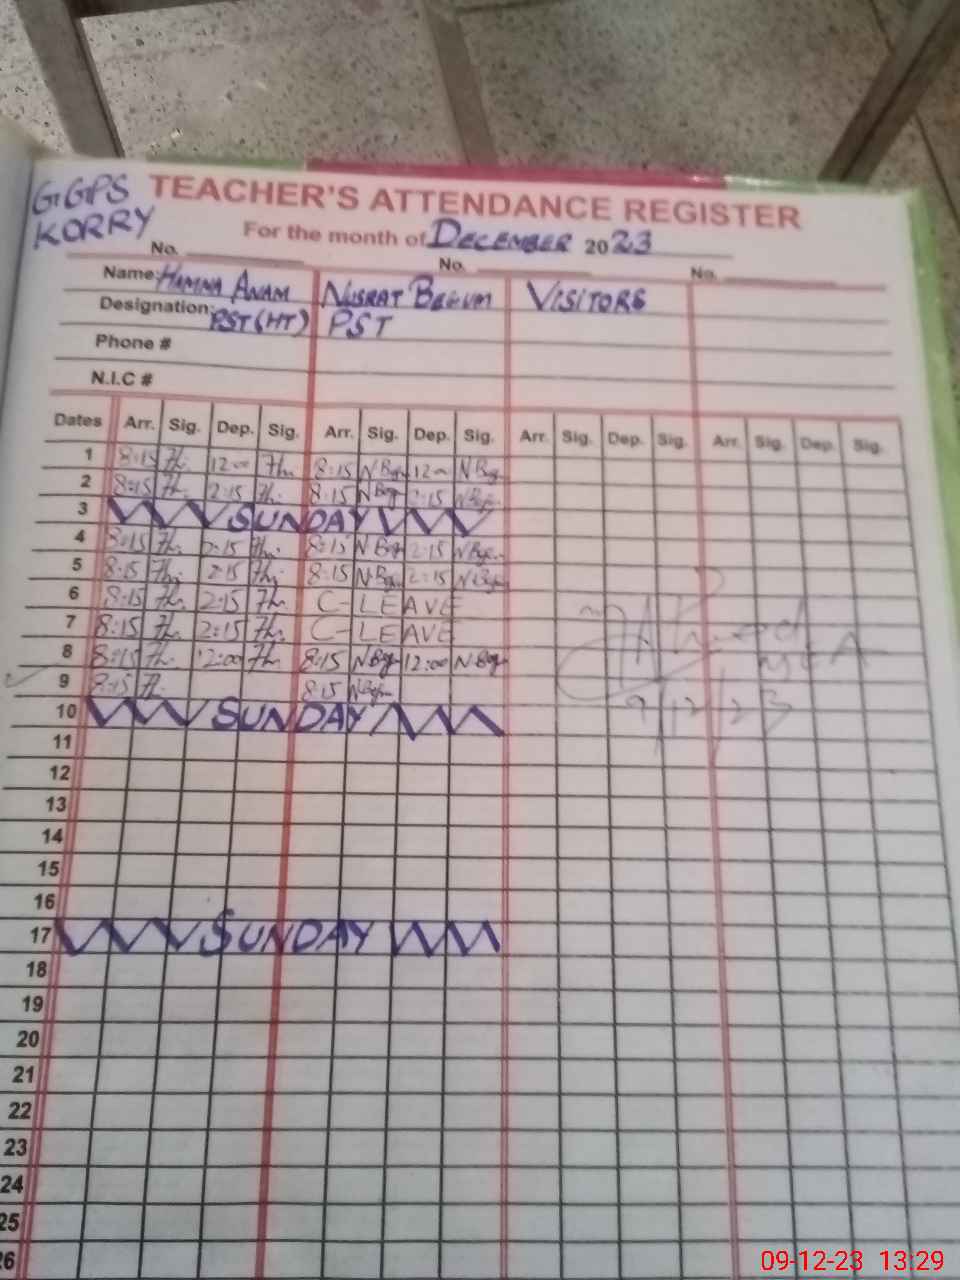 GGPS TEACHER'S ATTENDANCE REGISTER
KORRY For the month of DECEMBER 2023
No. No. No.
Name: HAMNA ANAM NUSRAT BEGUM VISITORS
Designation: PST(HT) PST
Phone #
N.I.C #
Dates Arr. Sig. Dep. Sig. Arr. Sig. Dep. Sig. Arr. Sig. Dep. Sig. Arr. Sig. Dep. Sig.
1 8:15 12:00 8:15 NBeg 12:00 NBeg
2 8:15 2:15 8:15 NBeg 2:15 NBeg
3 SUNDAY
4 8:15 2:15 8:15 NBeg 2:15 NBeg
5 8:15 2:15 8:15 NBeg 2:15 NBeg
6 8:15 2:15 C-LEAVE
7 8:15 2:15 C-LEAVE
8 8:15 12:00 8:15 NBeg 12:00 NBeg
MEA
9 8:15 8:15 NBeg
9/12/23
10 SUNDAY
11
12
13
14
15
16
17 SUNDAY
18
19
20
21
22
23
24
25
26
09-12-23 13:29